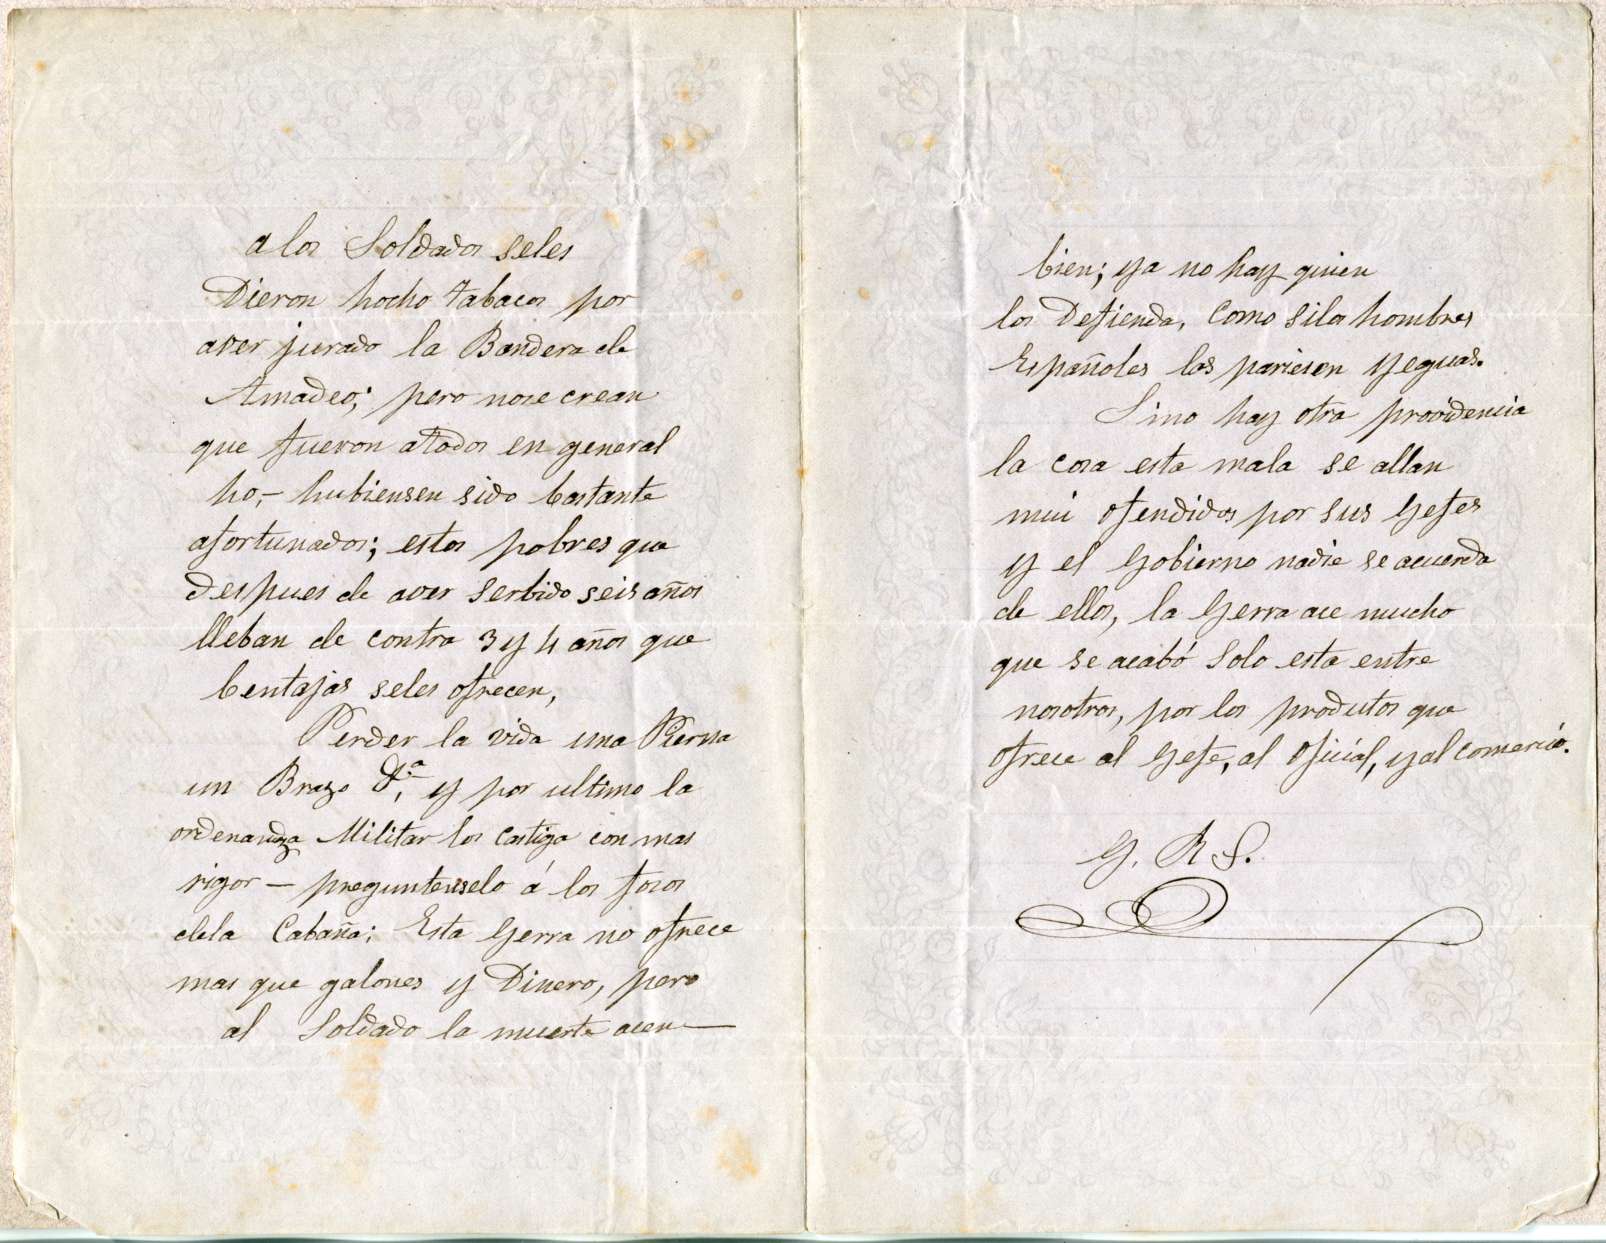 a los Soldados seles
Dieron hocho tabacos por
aver jurado la Bandera de
Amadeo; pero nose crean
que fueron atodos en general
ho,- hubiensen sido bastante
afortunados; estos pobres que
despues de aver serbido seis años
lleban de contra 3 y 4 años que
bentajas seles ofrecen,
Perder la vida una Pierna
un Brazo &.ª, y por ultimo la
ordenanza Militar los castiga con mas
rigor - preguntenselo á los fosos
dela Cabaña; Esta Gerra no ofrece
mas que galones y Dinero, pero
al Soldado la muerte acen
bien; ya no hay quien
los Defienda, Como silos hombres
Españoles las pariesen Yeguas.
Sino hay otra providencia
la cosa esta mala se allan
mui ofendidos por sus Gefes
y el Gobierno nadie se acuerda
de ellos, la Gerra ace mucho
que se acabó solo esta entre
nosotros, por los produtos que
ofrece al Gefe, al Oficial, y al comercio.
G. R S.